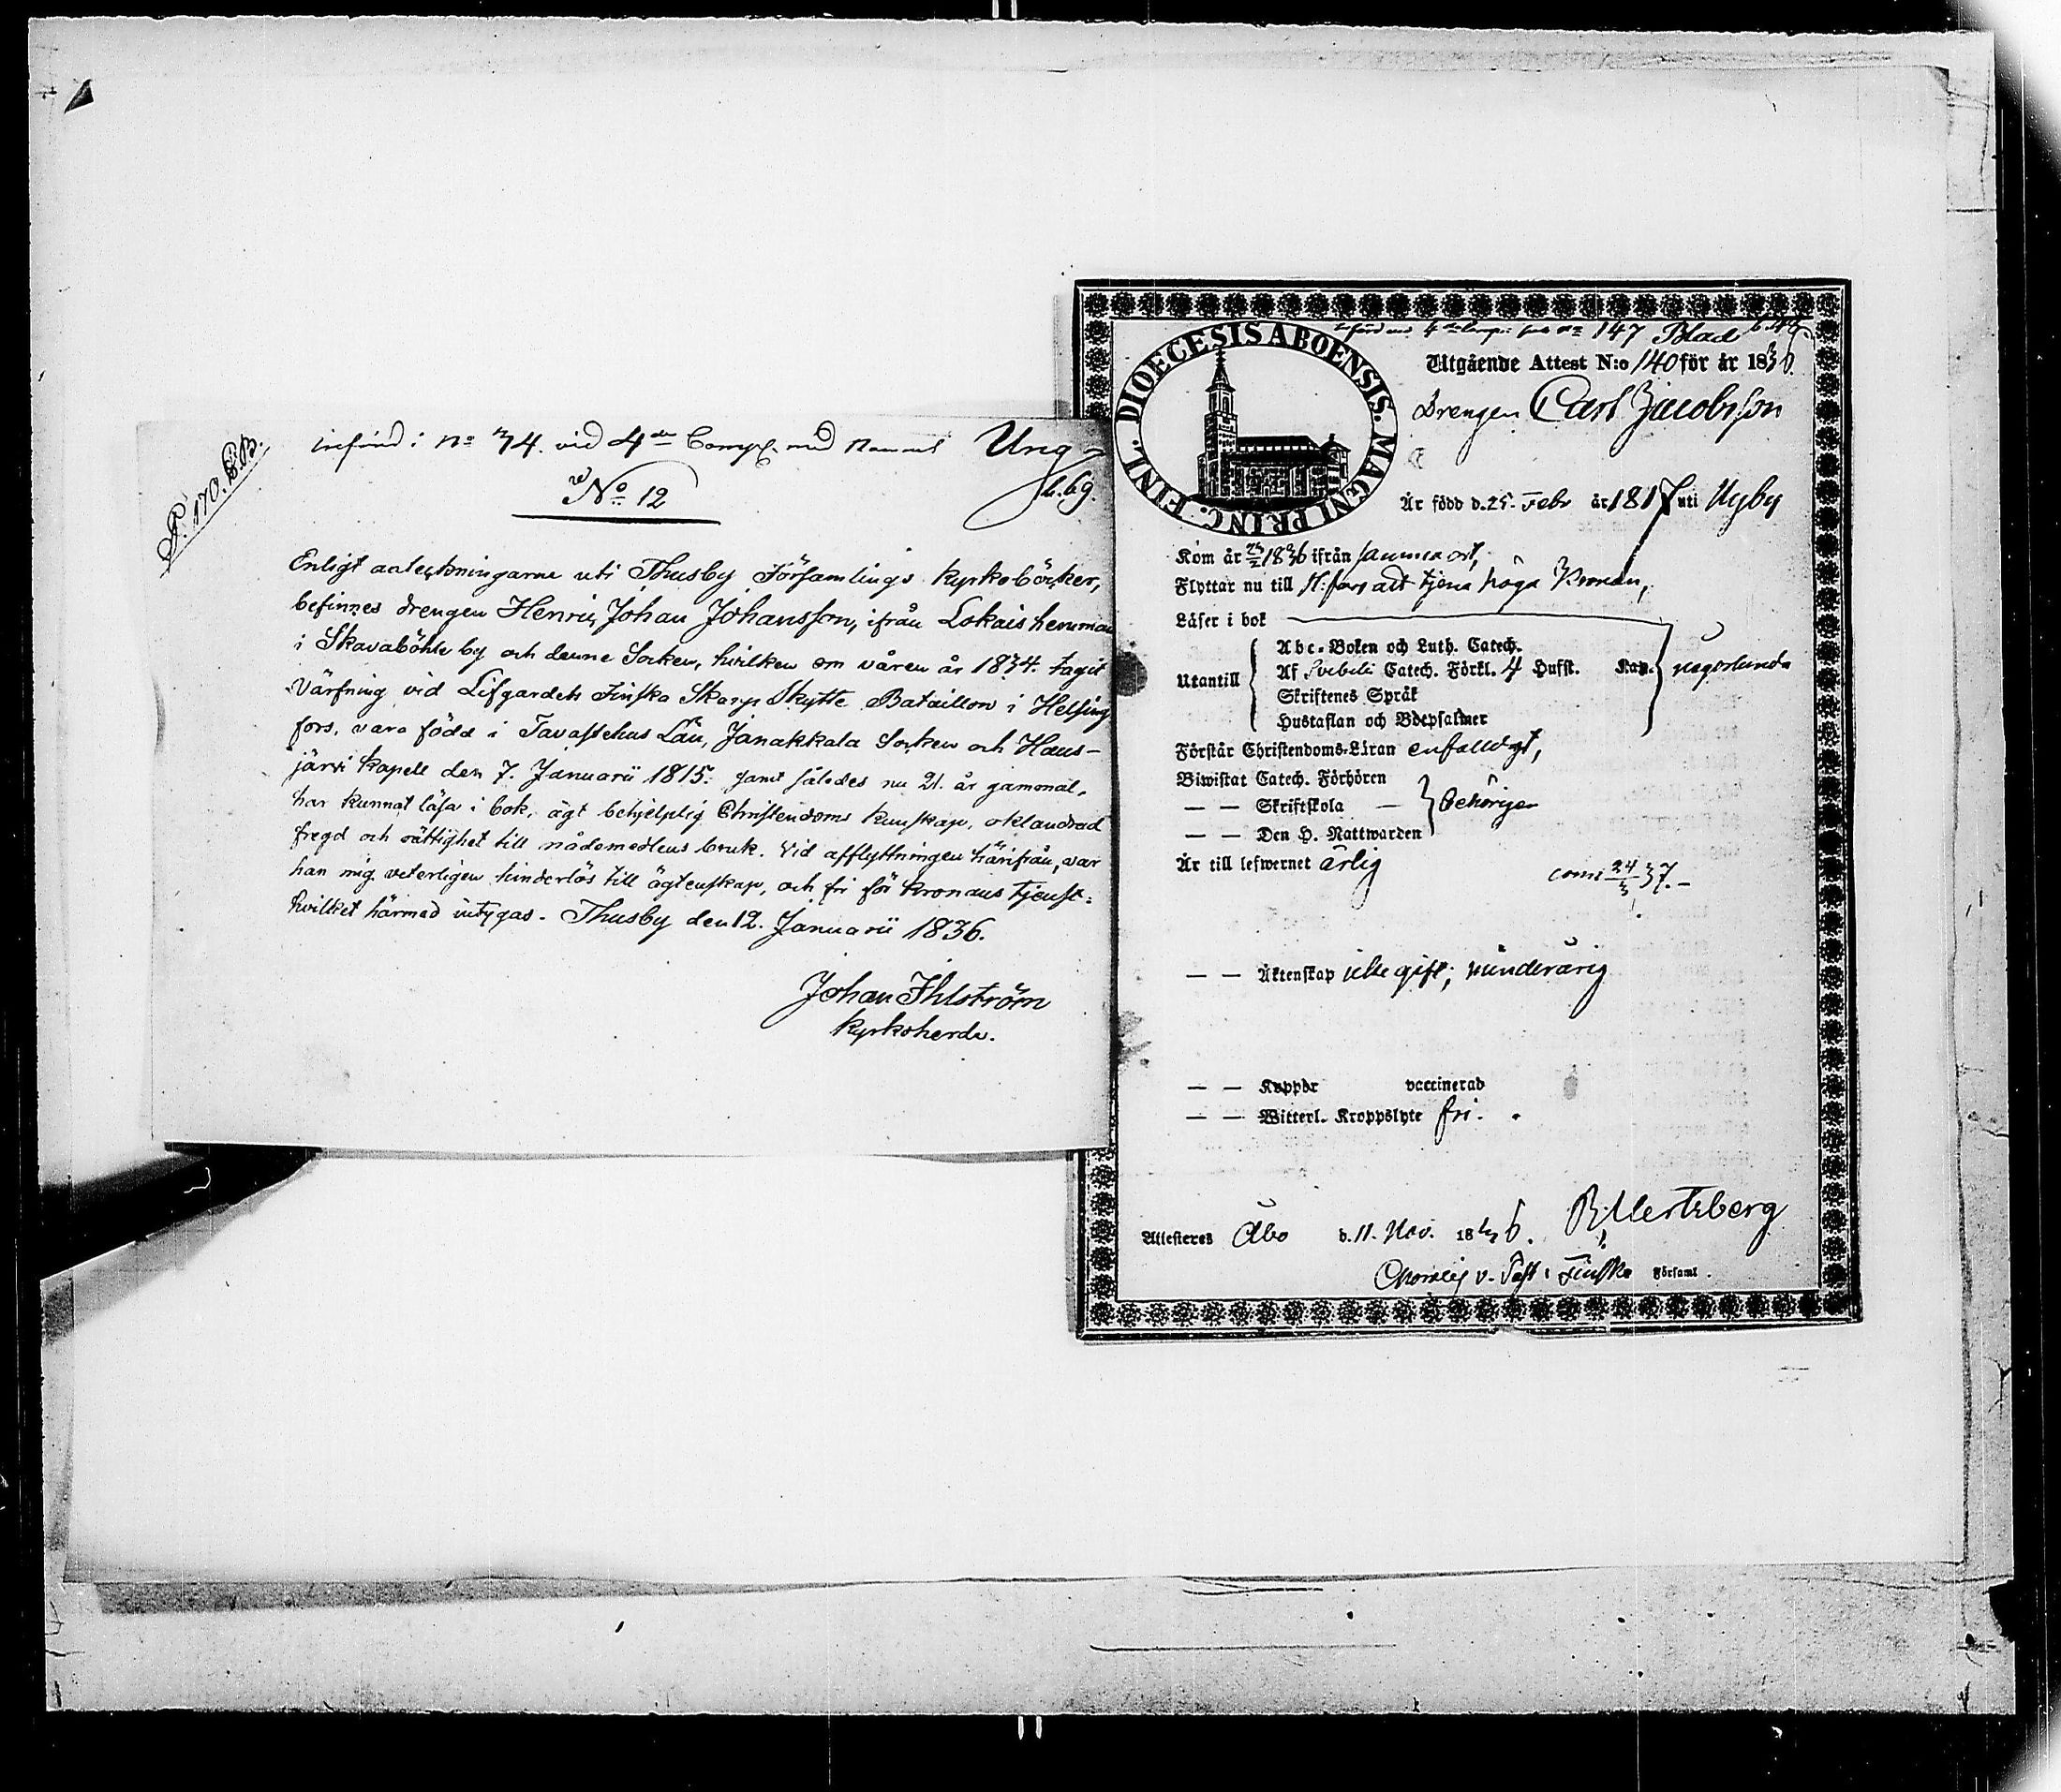 P. 170. C.B.
införd i No 74. vid 4de Comp. med Namnet Ung
No 12
b. 69.
Enligt anteckningarne uti Thusby Församlings Kyrkoböcker,
befinnes drengen Henric Johan Johansson, ifrån Lokais hemman
i Skavaböhle by och denne Socken, hvilken om våren år 1834. tagit
Värfning vid Lifgardets Finska Skarp Skytte Bataillon i Helsing
fors, vara född i Tavastehus Län, Janakkala Socken och Haus-
järvi Kapell den 7. Januarii 1815. samt således nu 21. år gammal,
har kunnat läsa i bok, ägt behjelplig Christendoms kunskap, oklandrad
fregd och rättighet till nådemedlens bruk. Vid afflyttningen härifrån, var
han mig veterligen hinderlös till ägtenskap, och fri för Kronans tjenst:
hvilket härmed intygas. Thusby den 12. Januarii 1836.
Johan Ihlström
Kyrkoherde.
DIOECESIS ABOENSIS. MAGNI PRINC. FINL.
införd vid 4de Comp. No 147 Blad
Utgående Attest N:o 140 för år 1836.
Drengen Carl Jacobsson
Är född d. 25. Febr år 1817 uti Nyby
Kom år 1836 ifrån samma ort,
Flyttar nu till H:fors att tjena höga Kronan,
Läser i bok
Utantill
Abc-Boken och Luth. Catech.
Af Svebilii Catech. Förkl. 4 Hufst. Kap. någorlunda
Skriftenes Språk
Hustaflan och Botpsalmer
Förstår Christendoms-Läran enfaldigt,
Biwistat Catech. Förhören
— — Skriftskola — behörigen
— — Den H. Nattwarden
Är till lefwernet ärlig
comi 24/3 37.-
— — Äktenskap icke gift; minderårig
— — Koppor vaccinerad
— — Witterl. Kroppslyte fri.
Attesteras Åbo d. 11. Nov. 1836. Hertzberg
v. Past. i Finska Församl.